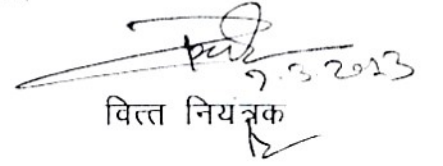 9.3.2013
वित्त नियंत्रक